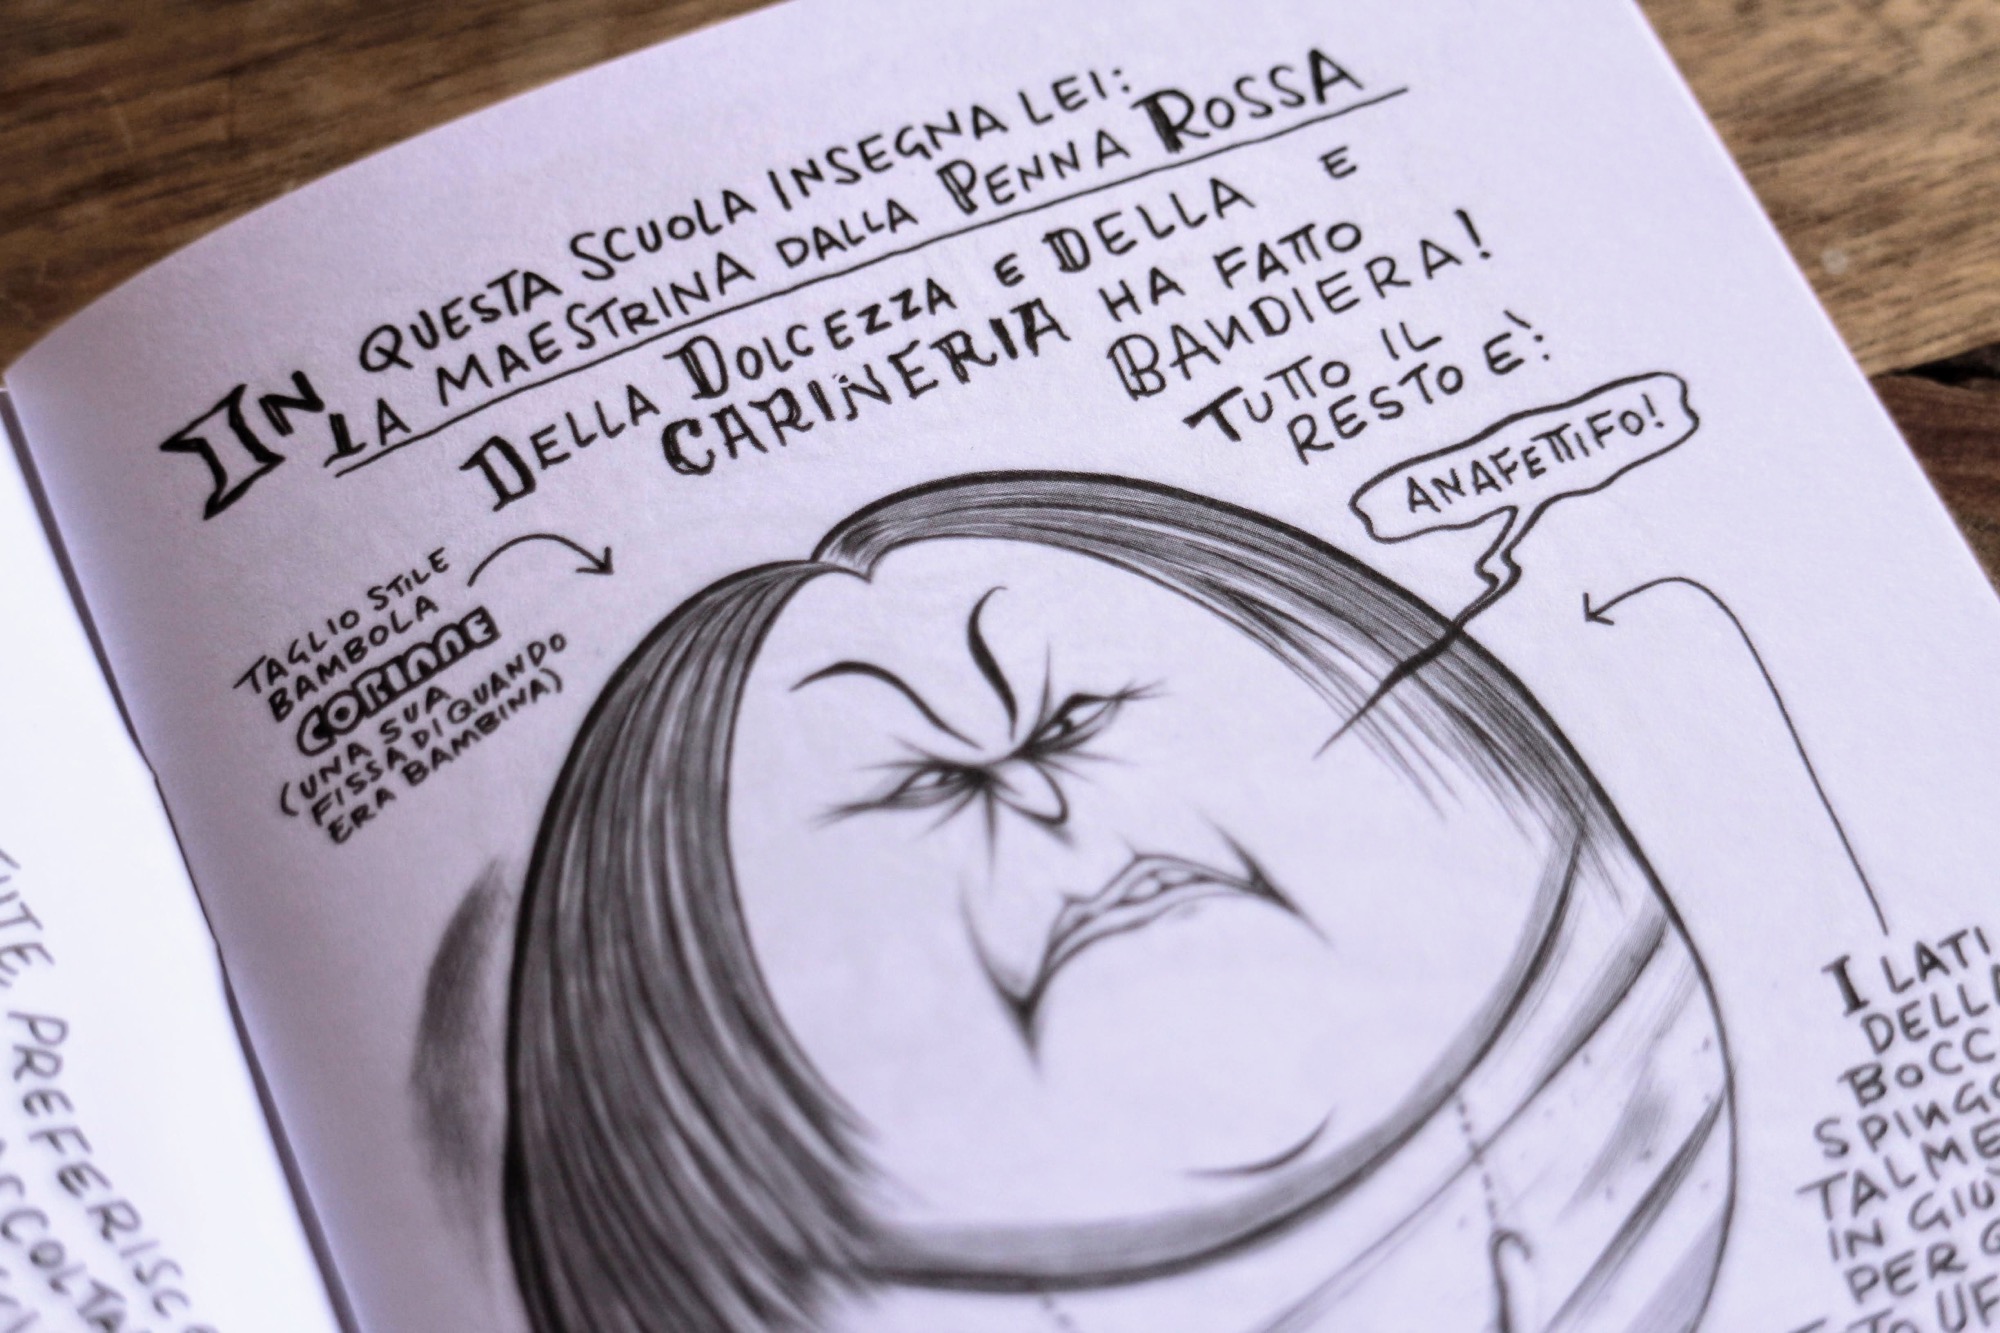 IN QUESTA SCUOLA INSEGNA LEI:
LA MAESTRINA DALLA PENNA ROSSA
DELLA DOLCEZZA E DELLA E
CARINERIA HA FATTO
BANDIERA!
TUTTO IL
RESTO E':
ANAFETTIFO!
TAGLIO STILE
BAMBOLA
CORINNE
(UNA SUA
FISSA DI QUANDO
ERA BAMBINA)
I LATI
DELLA
BOCC
SPINGO
TALME
IN GIU'
PER
PREFERISC
ASCOLTA